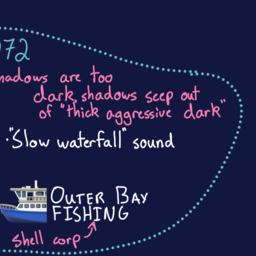 972
shadows are too
dark, shadows seep out
of "thick aggressive dark"
• "Slow waterfall" sound
OUTER BAY
FISHING
shell corp